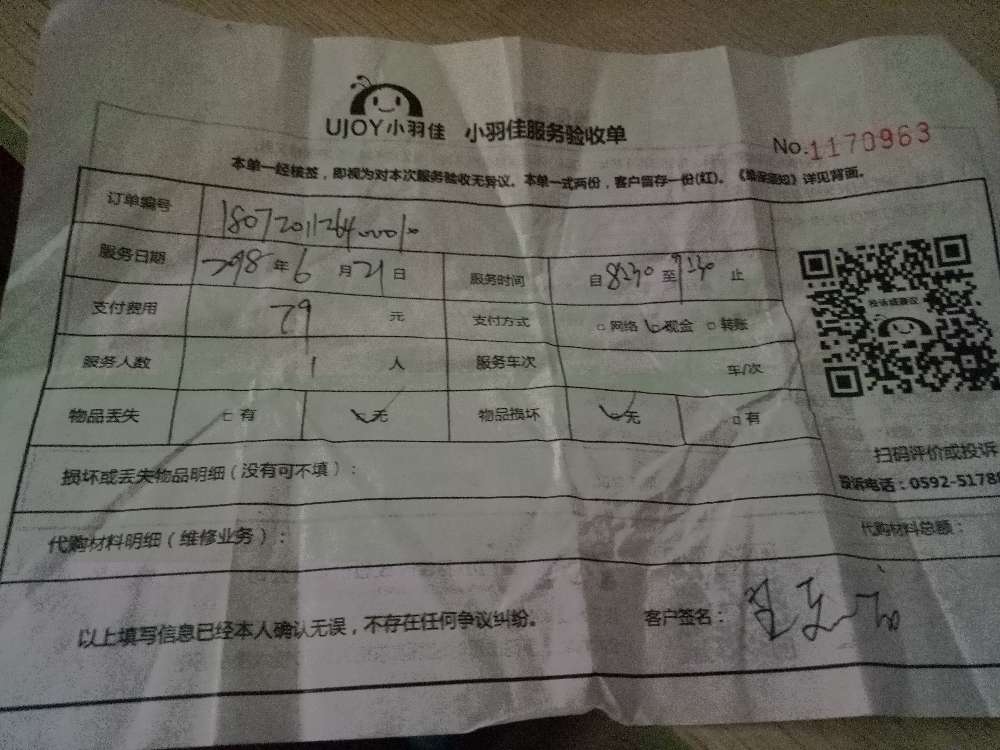 UJOY小羽佳 小羽佳服务验收单
No.1170963
本单一经核签，即视为对本次服务验收无异议。本单一式两份，客户留存一份(红)。《维保须知》详见背面。
订单编号
服务日期 年 6 月 21 日 服务时间 自 8:30 至 9:30 止
支付费用 79 元 支付方式 □网络 □现金 □转账
服务人数 1 人 服务车次 车/次
物品丢失 □有 □无 物品损坏 □无 □有
投诉或建议
扫码评价或投诉
投诉电话：0592-5178
损坏或丢失物品明细（没有可不填）：
代购材料明细（维修业务）： 代购材料总额：
以上填写信息已经本人确认无误，不存在任何争议纠纷。 客户签名：